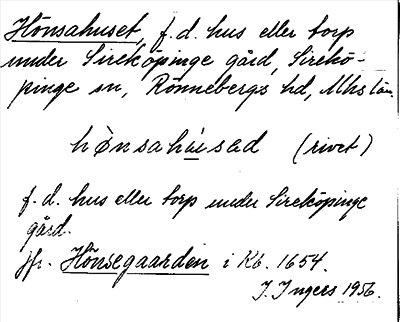 Hönsahuset, f.d. hus eller torp
under Sireköpinge gård, Sirekö-
pinge sn, Rönnebergs hd, Mhs län.
hǿnsahúsəd (rivet)
f.d. hus eller torp under Sireköpinge
gård.
jfr. Hönsegaarden i Kb. 1654.
I. Ingers 1956.